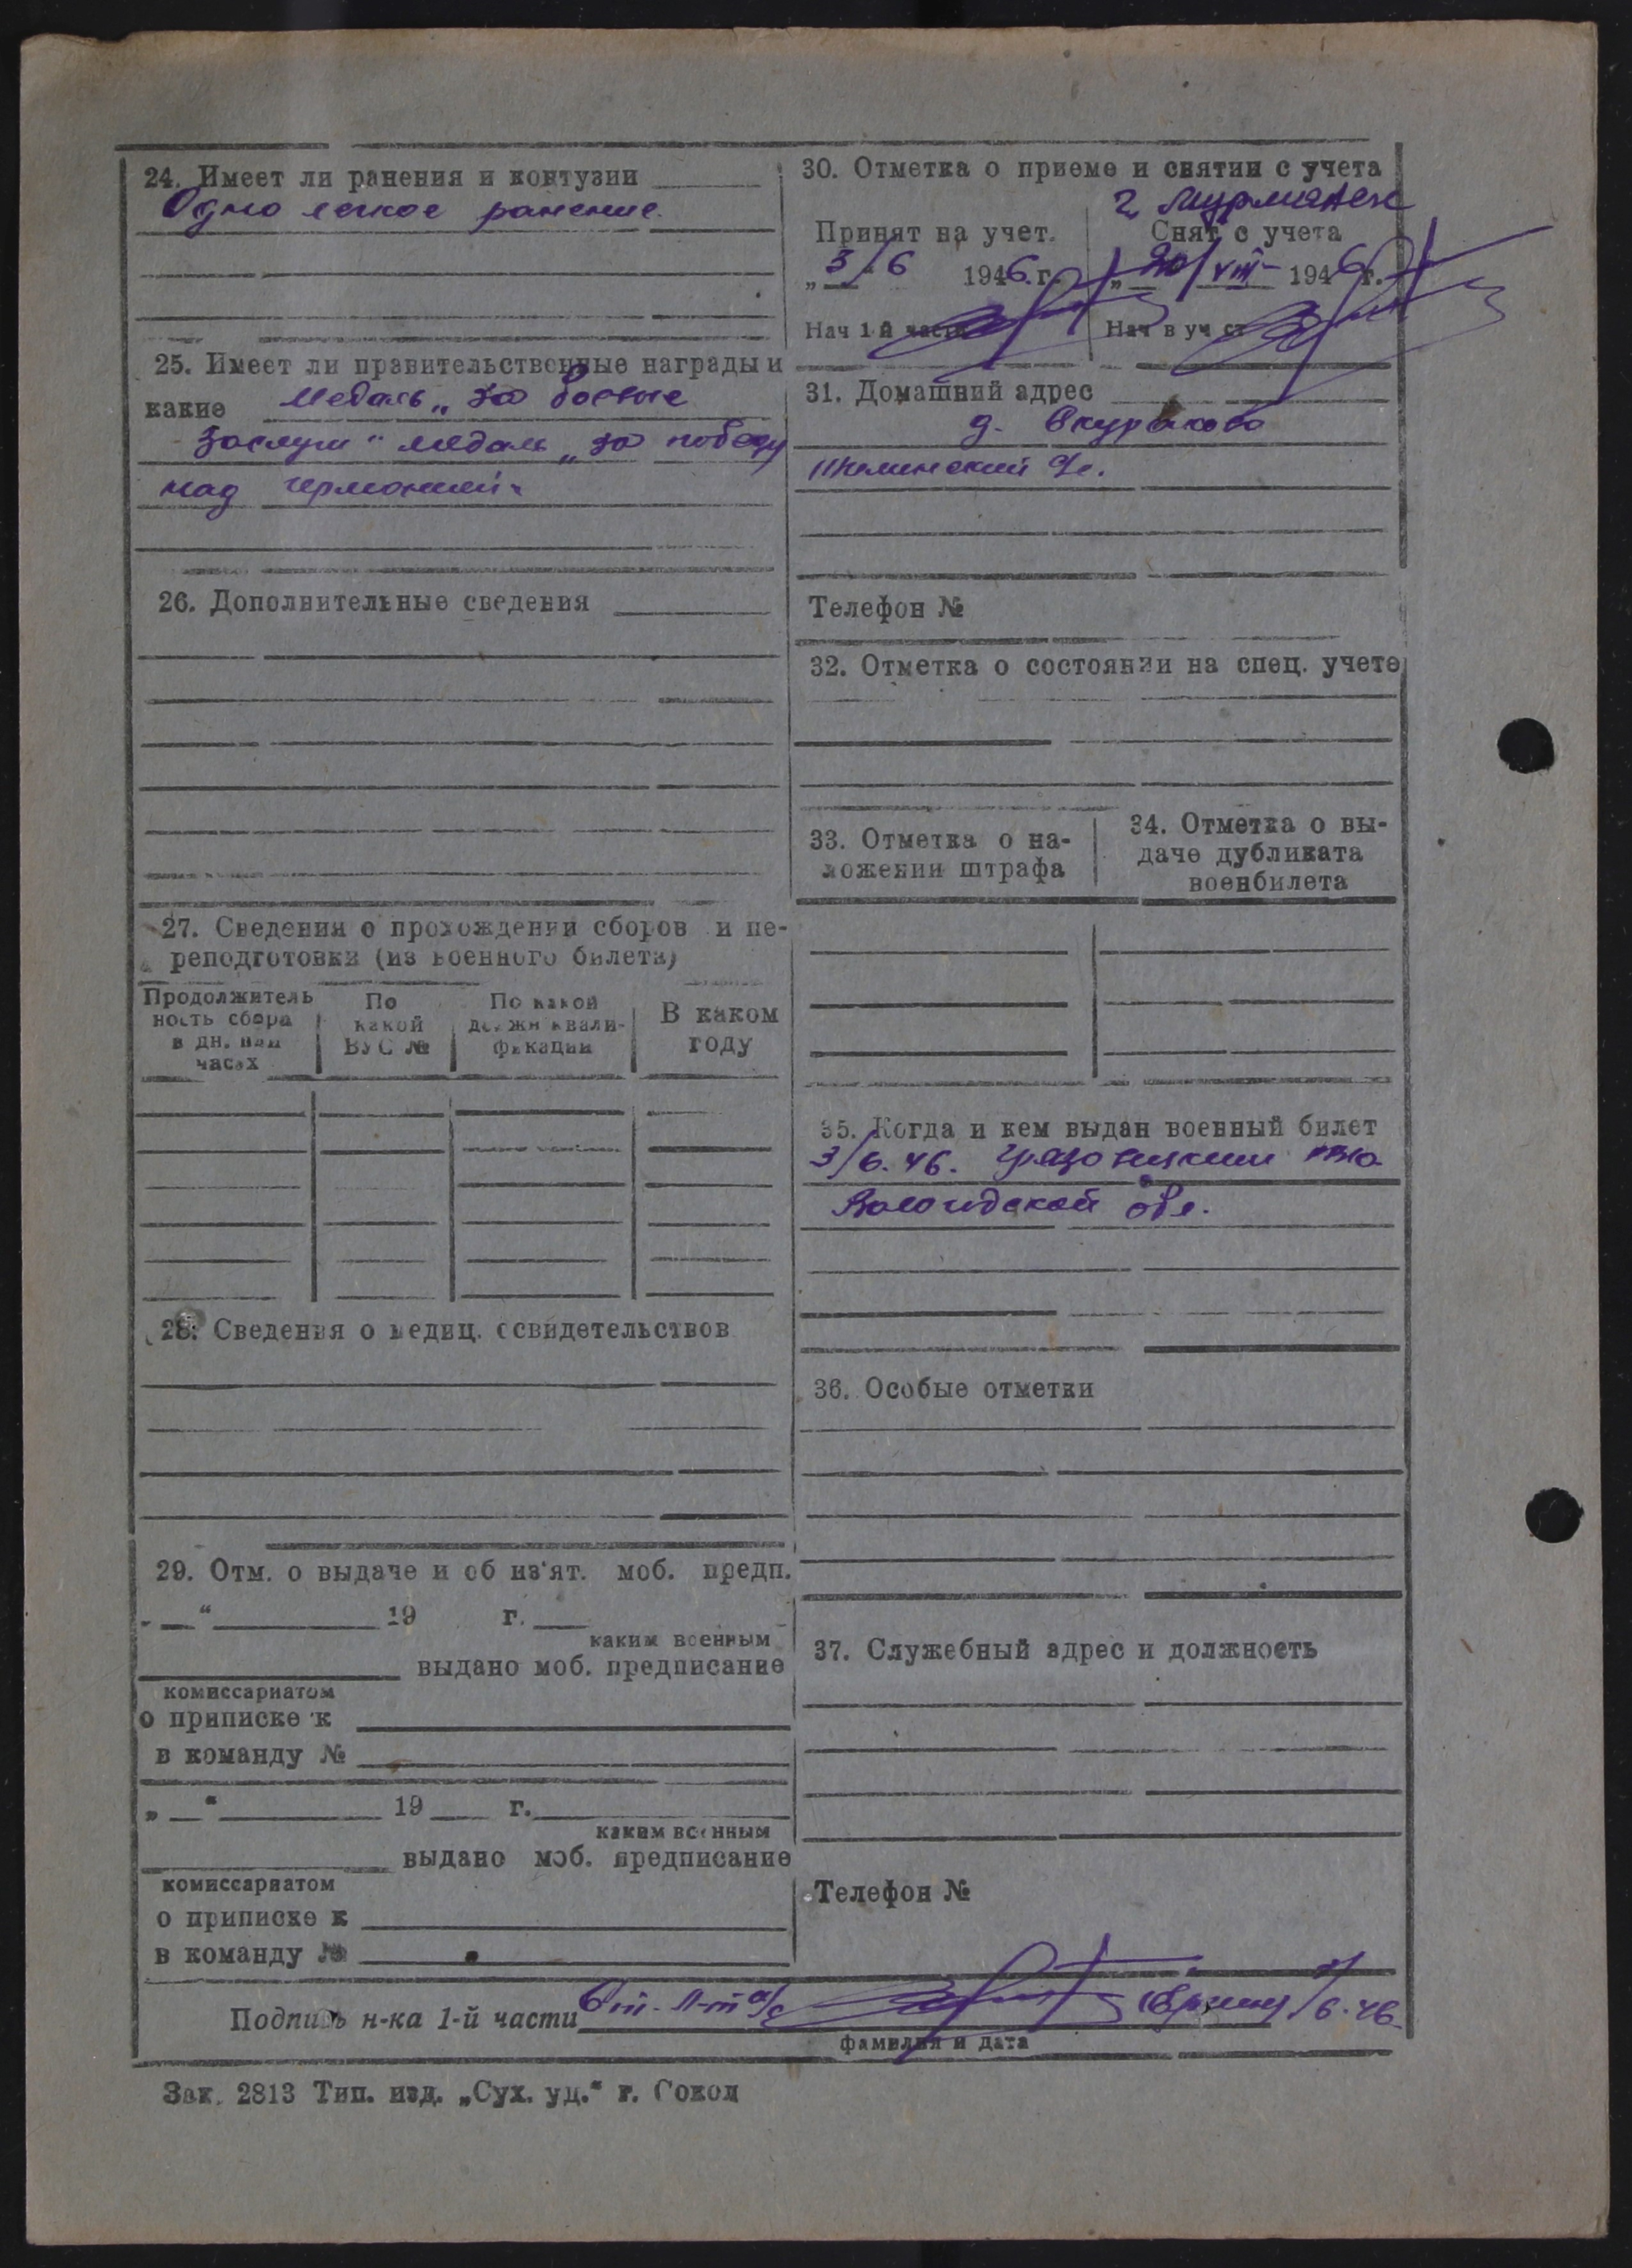 24. Имеет ли ранения и контузии
Одно легкое ранение.
25. Имеет ли правительственные награды и
какие Медаль „За боевые
заслуги“ медаль „за победу
над германией“
26. Дополнительные сведения
27. Сведения о прохождении сборов и пе-
реподготовки (из военного билета)
Продолжитель
ность сбора
в дн. или
часах
По
какой
ВУС №
По какой
должн квали-
фикации
В каком
году
28. Сведения о медиц. освидетельствов
29. Отм. о выдаче и об из'ят. моб. предп.
„ “ 19 г.
каким военным
выдано моб. предписание
комиссариатом
о приписке к
в команду №
„ “ 19 г.
каким военным
выдано моб. предписание
комиссариатом
о приписке к
в команду №
30. Отметка о приеме и снятии с учета
г. Мурманск
Принят на учет.
3/6 1946 г.
Нач 1й части
Снят с учета
„20/VIII 1946 г.
Нач в уч ст
31. Домашний адрес
д.
Телефон №
32. Отметка о состоянии на спец. учете
33. Отметка о на-
ложении штрафа
34. Отметка о вы-
даче дубликата
военбилета
35. Когда и кем выдан военный билет
3/6.46. Грязовецким РВК
Вологодской обл.
36. Особые отметки
37. Служебный адрес и должность
Телефон №
Подпись н-ка 1-й части Ст. л-т а/с /6.46.
фамилия и дата
Зак. 2813 Тип. изд. „Сух. уд.“ г. Сокол